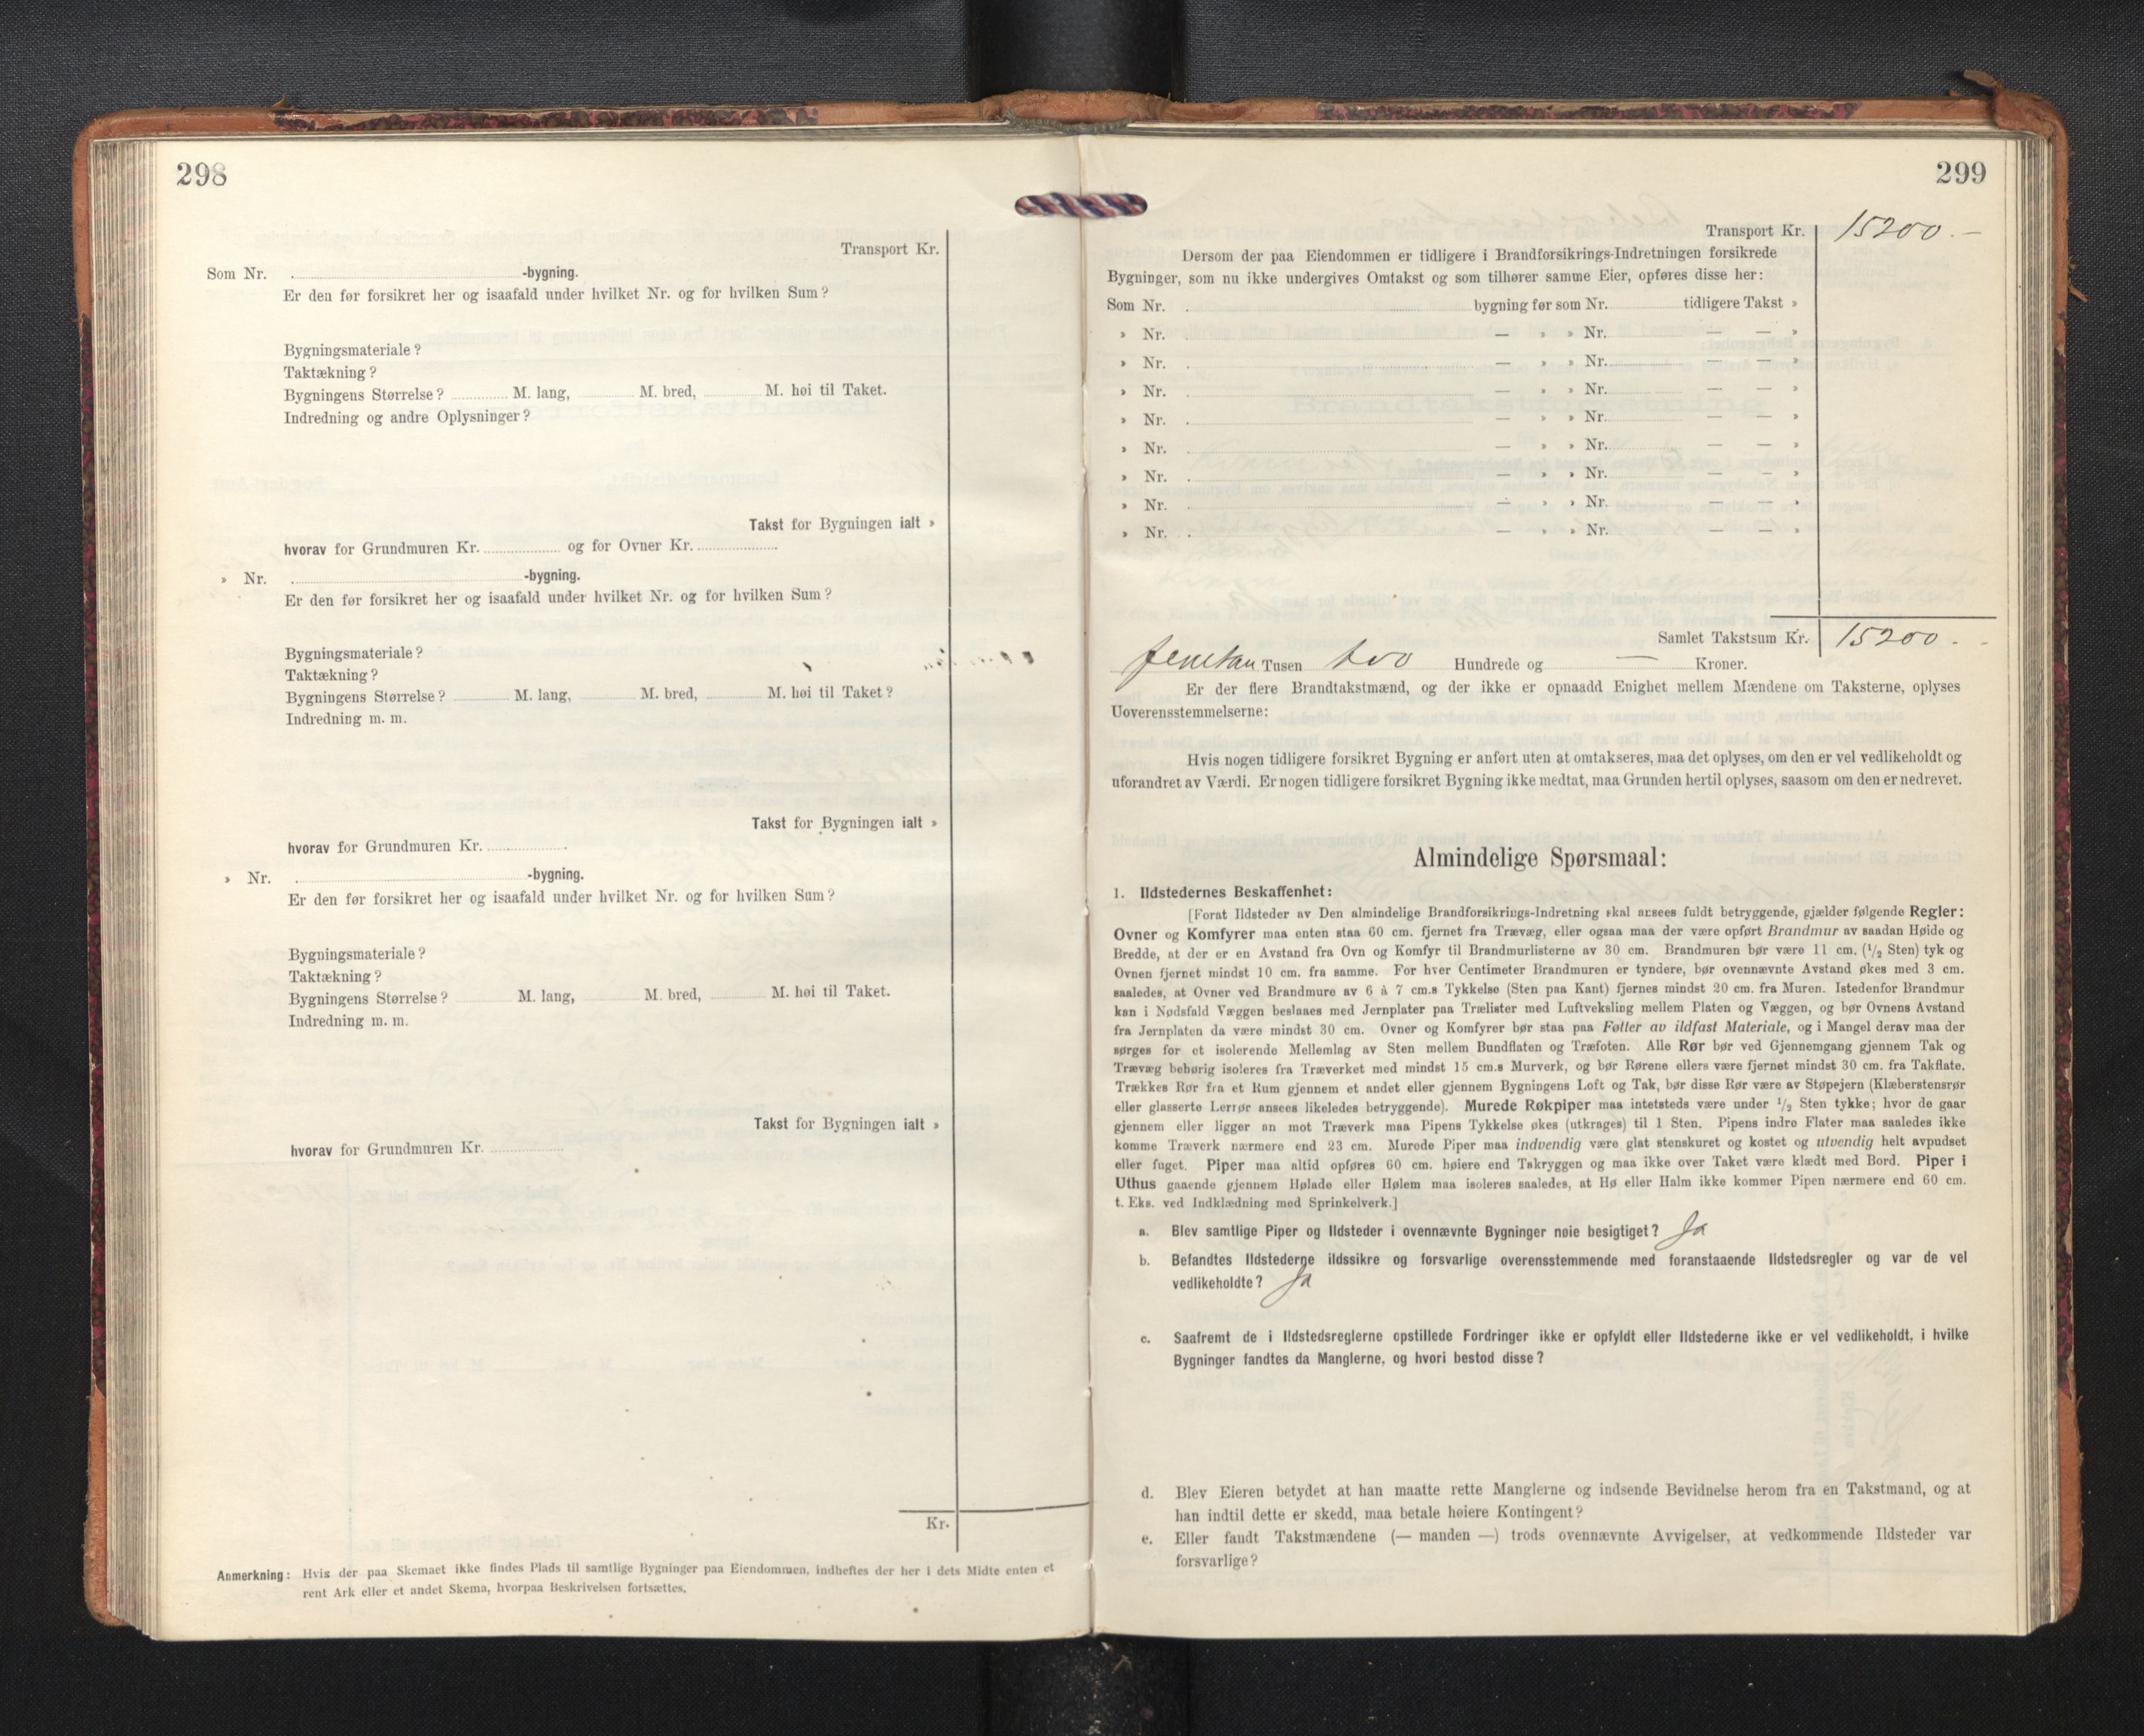 298
Transport Kr.
Som Nr. -bygning.
Er den før forsikret her og isaafald under hvilket Nr. og for hvilken Sum?
Bygningsmateriale?
Taktækning?
Bygningens Størrelse? M. lang, M. bred, M. høi til Taket.
Indredning og andre Oplysninger?
Takst for Bygningen ialt »
hvorav for Grundmuren Kr. og for Ovner Kr.
» Nr. -bygning.
Er den før forsikret her og isaafald under hvilket Nr. og for hvilken Sum?
Bygningsmateriale?
Taktækning?
Bygningens Størrelse? M. lang, M. bred, M. høi til Taket?
Indredning m. m.
Takst for Bygningen ialt »
hvorav for Grundmuren Kr.
» Nr. -bygning.
Er den før forsikret her og isaafald under hvilket Nr. og for hvilken Sum?
Bygningsmateriale?
Taktækning?
Bygningens Størrelse? M. lang, M. bred, M. høi til Taket.
Indredning m. m.
Takst for Bygningen ialt »
hvorav for Grundmuren Kr.
Kr.
Anmerkning: Hvis der paa Skemaet ikke findes Plads til samtlige Bygninger paa Eiendommen, indheftes der her i dets Midte enten et
rent Ark eller et andet Skema, hvorpaa Beskrivelsen fortsættes.
299
Transport Kr. 15200.-
Dersom der paa Eiendommen er tidligere i Brandforsikrings-Indretningen forsikrede
Bygninger, som nu ikke undergives Omtakst og som tilhører samme Eier, opføres disse her:
Som Nr. bygning før som Nr. tidligere Takst »
» Nr. — » » Nr. — — »
» Nr. — » » Nr. — — »
» Nr. — » » Nr. — — »
» Nr. — » » Nr. — — »
» Nr. — » » Nr. — — »
» Nr. — » » Nr. — — »
» Nr. — » » Nr. — — »
» Nr. — » » Nr. — — »
Samlet Takstsum Kr. 15200.-
femtan Tusen två Hundrede og — Kroner.
Er der flere Brandtakstmænd, og der ikke er opnaadd Enighet mellem Mændene om Taksterne, oplyses
Uoverensstemmelserne:
Hvis nogen tidligere forsikret Bygning er anført uten at omtakseres, maa det oplyses, om den er vel vedlikeholdt og
uforandret av Værdi. Er nogen tidligere forsikret Bygning ikke medtat, maa Grunden hertil oplyses, saasom om den er nedrevet.
Almindelige Spørsmaal:
1. Ildstedernes Beskaffenhet:
[Forat Ildsteder av Den almindelige Brandforsikrings-Indretning skal ansees fuldt betryggende, gjælder følgende Regler:
Ovner og Komfyrer maa enten staa 60 cm. fjernet fra Trævæg, eller ogsaa maa der være opført Brandmur av saadan Høide og
Bredde, at der er en Avstand fra Ovn og Komfyr til Brandmurlisterne av 30 cm. Brandmuren bør være 11 cm. (1/2 Sten) tyk og
Ovnen fjernet mindst 10 cm. fra samme. For hver Centimeter Brandmuren er tyndere, bør ovennævnte Avstand økes med 3 cm.
saaledes, at Ovner ved Brandmure av 6 à 7 cm.s Tykkelse (Sten paa Kant) fjernes mindst 20 cm. fra Muren. Istedenfor Brandmur
kan i Nødsfald Væggen beslaaes med Jernplater paa Trælister med Luftveksling mellem Platen og Væggen, og bør Ovnens Avstand
fra Jernplaten da være mindst 30 cm. Ovner og Komfyrer bør staa paa Føtter av ildfast Materiale, og i Mangel derav maa der
sørges for et isolerende Mellemlag av Sten mellem Bundflaten og Træfoten. Alle Rør bør ved Gjennemgang gjennem Tak og
Trævæg behørig isoleres fra Træverket med mindst 15 cm.s Murverk, og bør Rørene ellers være fjernet mindst 30 cm. fra Takflate.
Trækkes Rør fra et Rum gjennem et andet eller gjennem Bygningens Loft og Tak, bør disse Rør være av Støpejern (Klæberstensrør
eller glasserte Lerrør ansees likeledes betryggende). Murede Røkpiper maa intetsteds være under 1/2 Sten tykke; hvor de gaar
gjennem eller ligger an mot Træverk maa Pipens Tykkelse økes (utkrages) til 1 Sten. Pipens indre Flater maa saaledes ikke
komme Træverk nærmere end 23 cm. Murede Piper maa indvendig være glat stenskuret og kostet og utvendig helt avpudset
eller fuget. Piper maa altid opføres 60 cm. høiere end Takryggen og maa ikke over Taket være klædt med Bord. Piper i
Uthus gaaende gjennem Hølade eller Hølem maa isoleres saaledes, at Hø eller Halm ikke kommer Pipen nærmere end 60 cm.
t. Eks. ved Indklædning med Sprinkelverk.]
a. Blev samtlige Piper og Ildsteder i ovennævnte Bygninger nøie besigtiget? Ja
b. Befandtes Ildstederne ildssikre og forsvarlige overensstemmende med foranstaaende Ildstedsregler og var de vel
vedlikeholdte? Ja
c. Saafremt de i Ildstedsreglerne opstillede Fordringer ikke er opfyldt eller Ildstederne ikke er vel vedlikeholdt, i hvilke
Bygninger fandtes da Manglerne, og hvori bestod disse?
d. Blev Eieren betydet at han maatte rette Manglerne og indsende Bevidnelse herom fra en Takstmand, og at
han indtil dette er skedd, maa betale høiere Kontingent?
e. Eller fandt Takstmændene (— manden —) trods ovennævnte Avvigelser, at vedkommende Ildsteder var
forsvarlige?